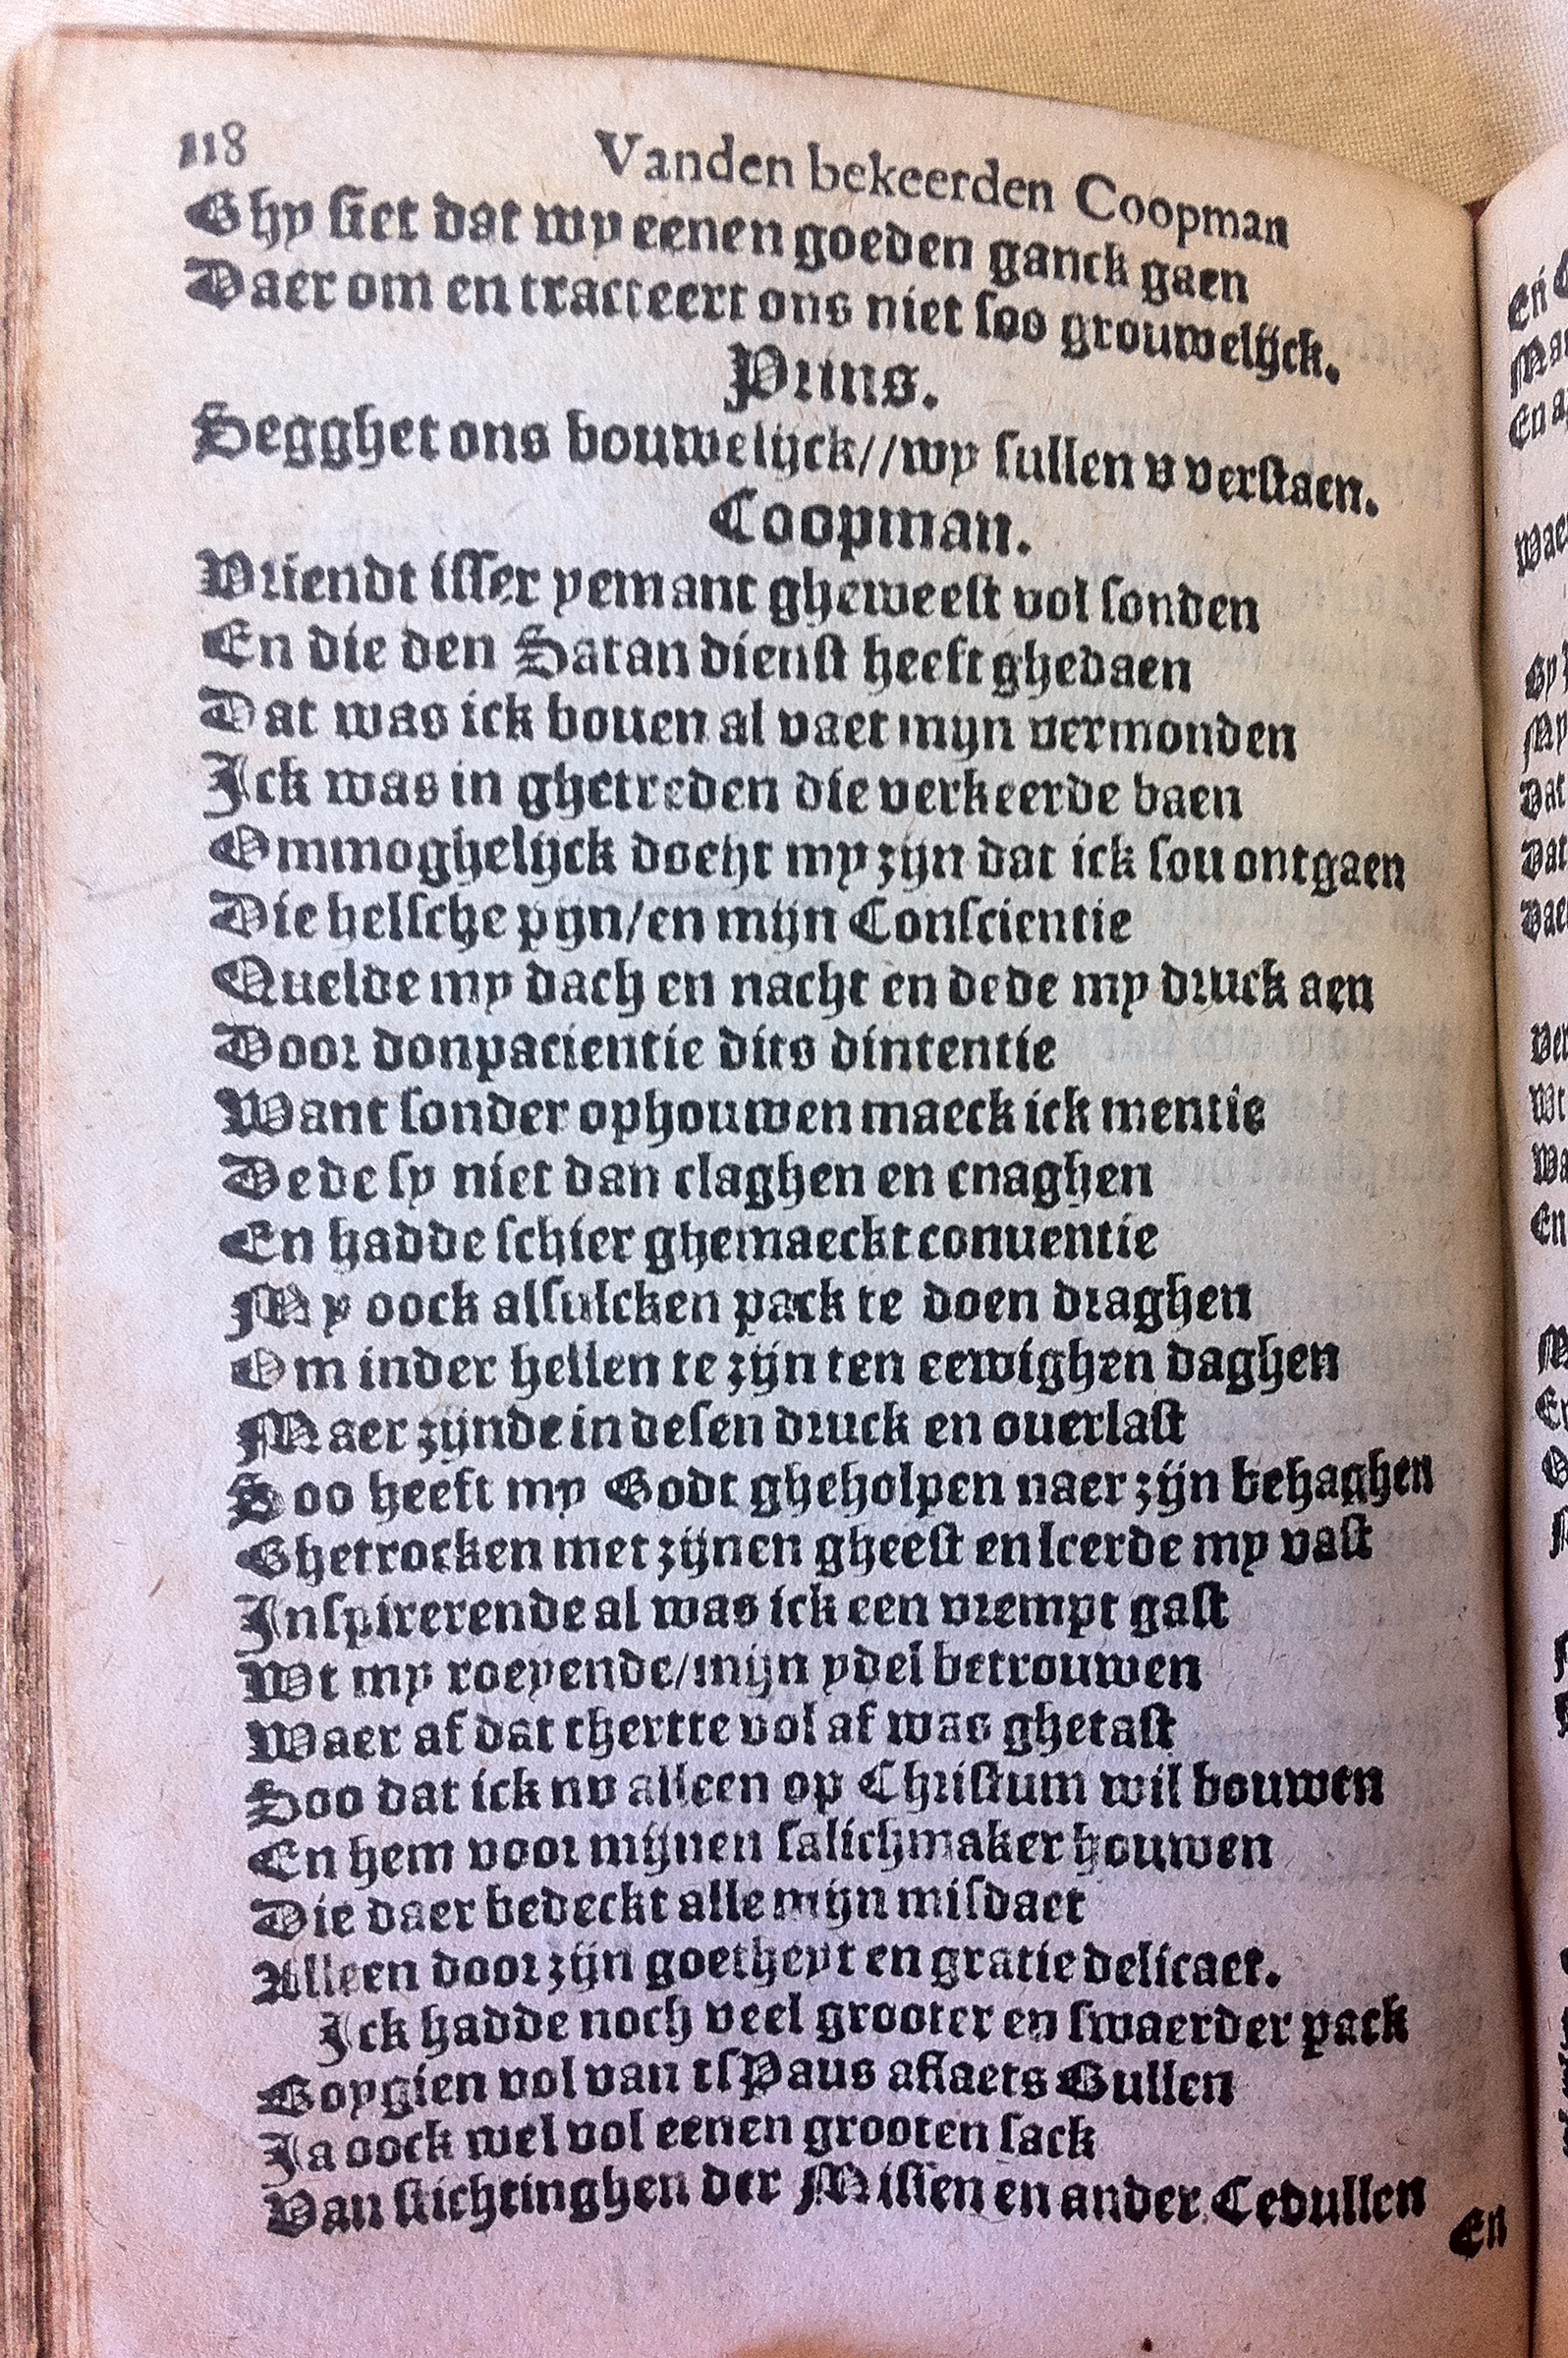 118 Vanden bekeerden Coopman
Ghy siet dat wy eenen goeden ganck gaen
Daer om en tracteert ons niet soo grouwelijck.
Prins.
Segghet ons bouwelijck//wy sullen v verstaen.
Coopman.
Vriendt isser yemant gheweest vol sonden
En die den Satan dienst heeft ghedaen
Dat was ick bouen al vaet mijn vermonden
Ick was in ghetreden die verkeerde baen
Ommoghelijck docht my zijn dat ick sou ontgaen
Die helsche pijn/en mijn Conscientie
Quelde my dach en nacht en dede my druck aen
Door donpacientie dits dintentie
Want sonder ophouwen maeck ick mentie
Dede sy niet dan claghen en cnaghen
En hadde schier ghemaeckt conuentie
My oock alsulcken pack te doen draghen
Om inder hellen te zijn ten eewighen daghen
Maer zijnde in desen druck en ouerlast
Soo heeft my Godt gheholpen naer zijn behaghen
Ghetrocken met zijnen gheest en leerde my vast
Inspirerende al was ick een vrempt gast
Wt my roeyende/mijn ydel betrouwen
Waer af dat thertte vol af was ghetast
Soo dat ick nv alleen op Christum wil bouwen
En hem voor mijnen salichmaker houwen
Die daer bedeckt alle mijn misdaet
Alleen door zijn goetheyt en gratie delicaet.
Ick hadde noch veel grooter en swaerder pack
Boygien vol van tsPaus aflaets Bullen
Ja oock wel vol eenen grooten sack
Van stichtinghen der Missen en ander Cedullen
En